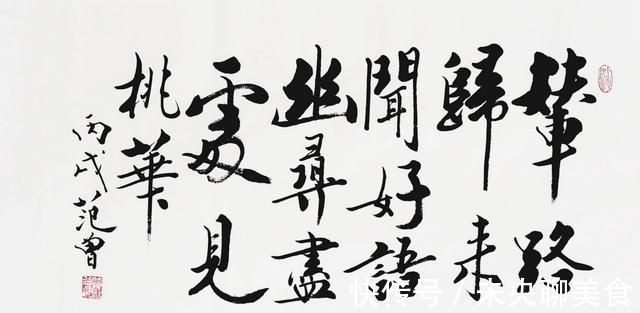 輦路
歸来
聞好語
幽尋盡
處見
桃華
丙戌范曾
快传号 / 未央聊美食